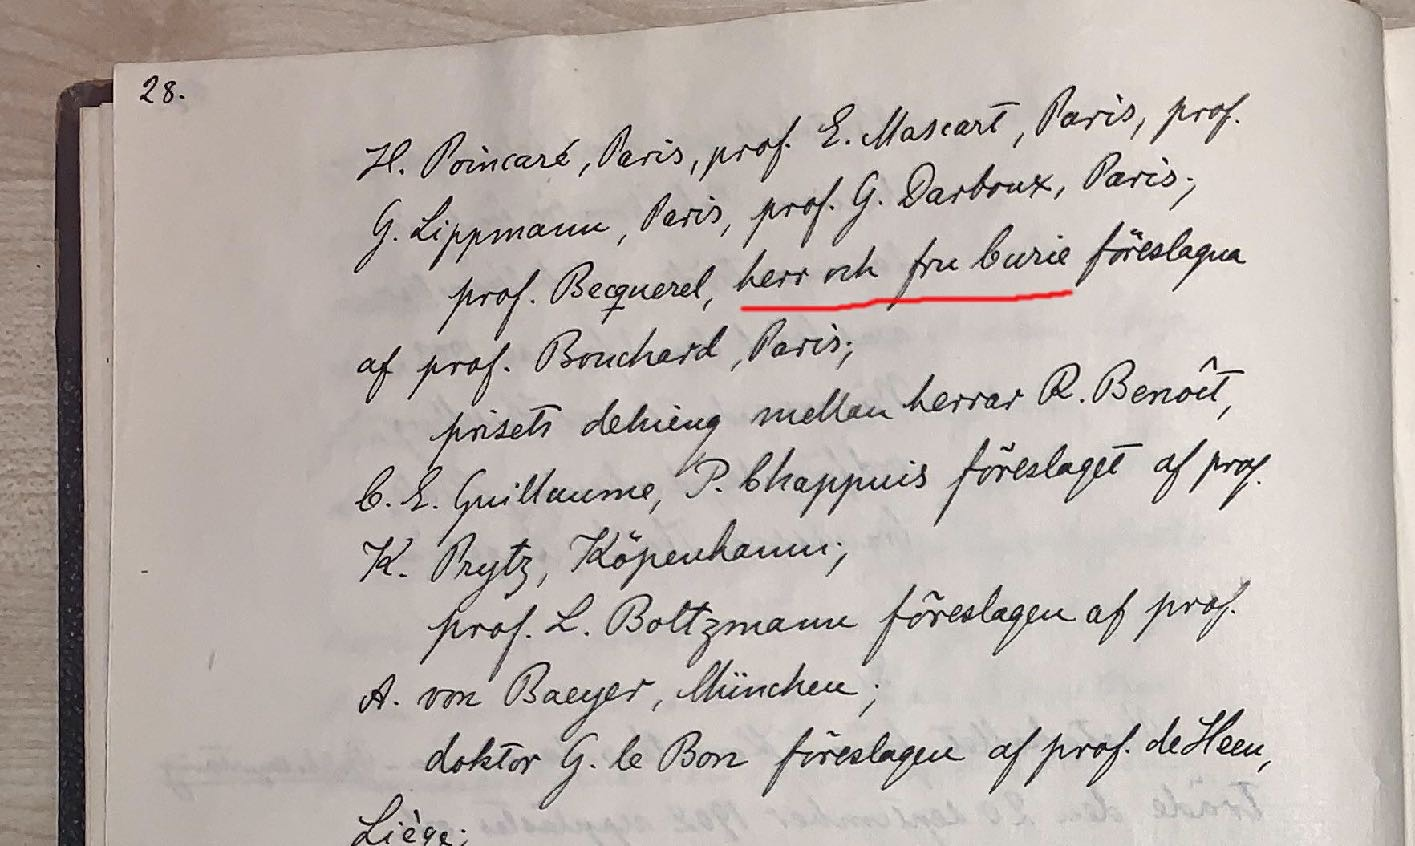 28.
H. Poincaré, Paris, prof. E. Mascart, Paris, prof.
G. Lippmann, Paris, prof. G. Darboux, Paris;
prof. Becquerel, herr och fru Curie föreslagna
af prof. Bouchard, Paris;
prisets delning mellan herrar R. Benoît,
C. E. Guillaume, P. Chappuis föreslaget af prof.
K. Prytz, Köpenhamn;
prof. L. Boltzmann föreslagen af prof.
A. von Baeyer, München;
doktor G. le Bon föreslagen af prof. de Heen,
Liège;